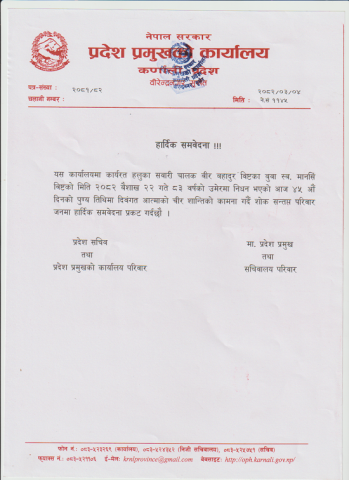 नेपाल सरकार
प्रदेश प्रमुखको कार्यालय
कर्णाली प्रदेश
वीरेन्द्रनगर, सुर्खेत
पत्र-संख्या : २०८१/८२
चलानी नम्बर :
२०८२/०३/०५
मिति :
हार्दिक समवेदना !!!
यस कार्यालयमा कार्यरत हलुका सवारी चालक वीर बहादुर विष्टका बुवा स्व. मानसिं
विष्टको मिति २०८२ बैशाख २२ गते ८३ वर्षको उमेरमा निधन भएको आज ४५ औं
दिनको पुण्य तिथिमा दिवंगत आत्माको चीर शान्तिको कामना गर्दै शोक सन्तप्त परिवार
जनमा हार्दिक समवेदना प्रकट गर्दछौं ।
प्रदेश सचिव
तथा
प्रदेश प्रमुखको कार्यालय परिवार
मा. प्रदेश प्रमुख
तथा
सचिवालय परिवार
फोन नं : ०८३-५२३२६९ (कार्यालय), ०८३-५२४३५२ (निजी सचिवालय), ०८३-५२५७५१ (सचिव)
फ्याक्स नं : ०८३-५२११०६ ई-मेल: krnlprovince@gmail.com वेबसाइट: http://oph.karnali.gov.np/